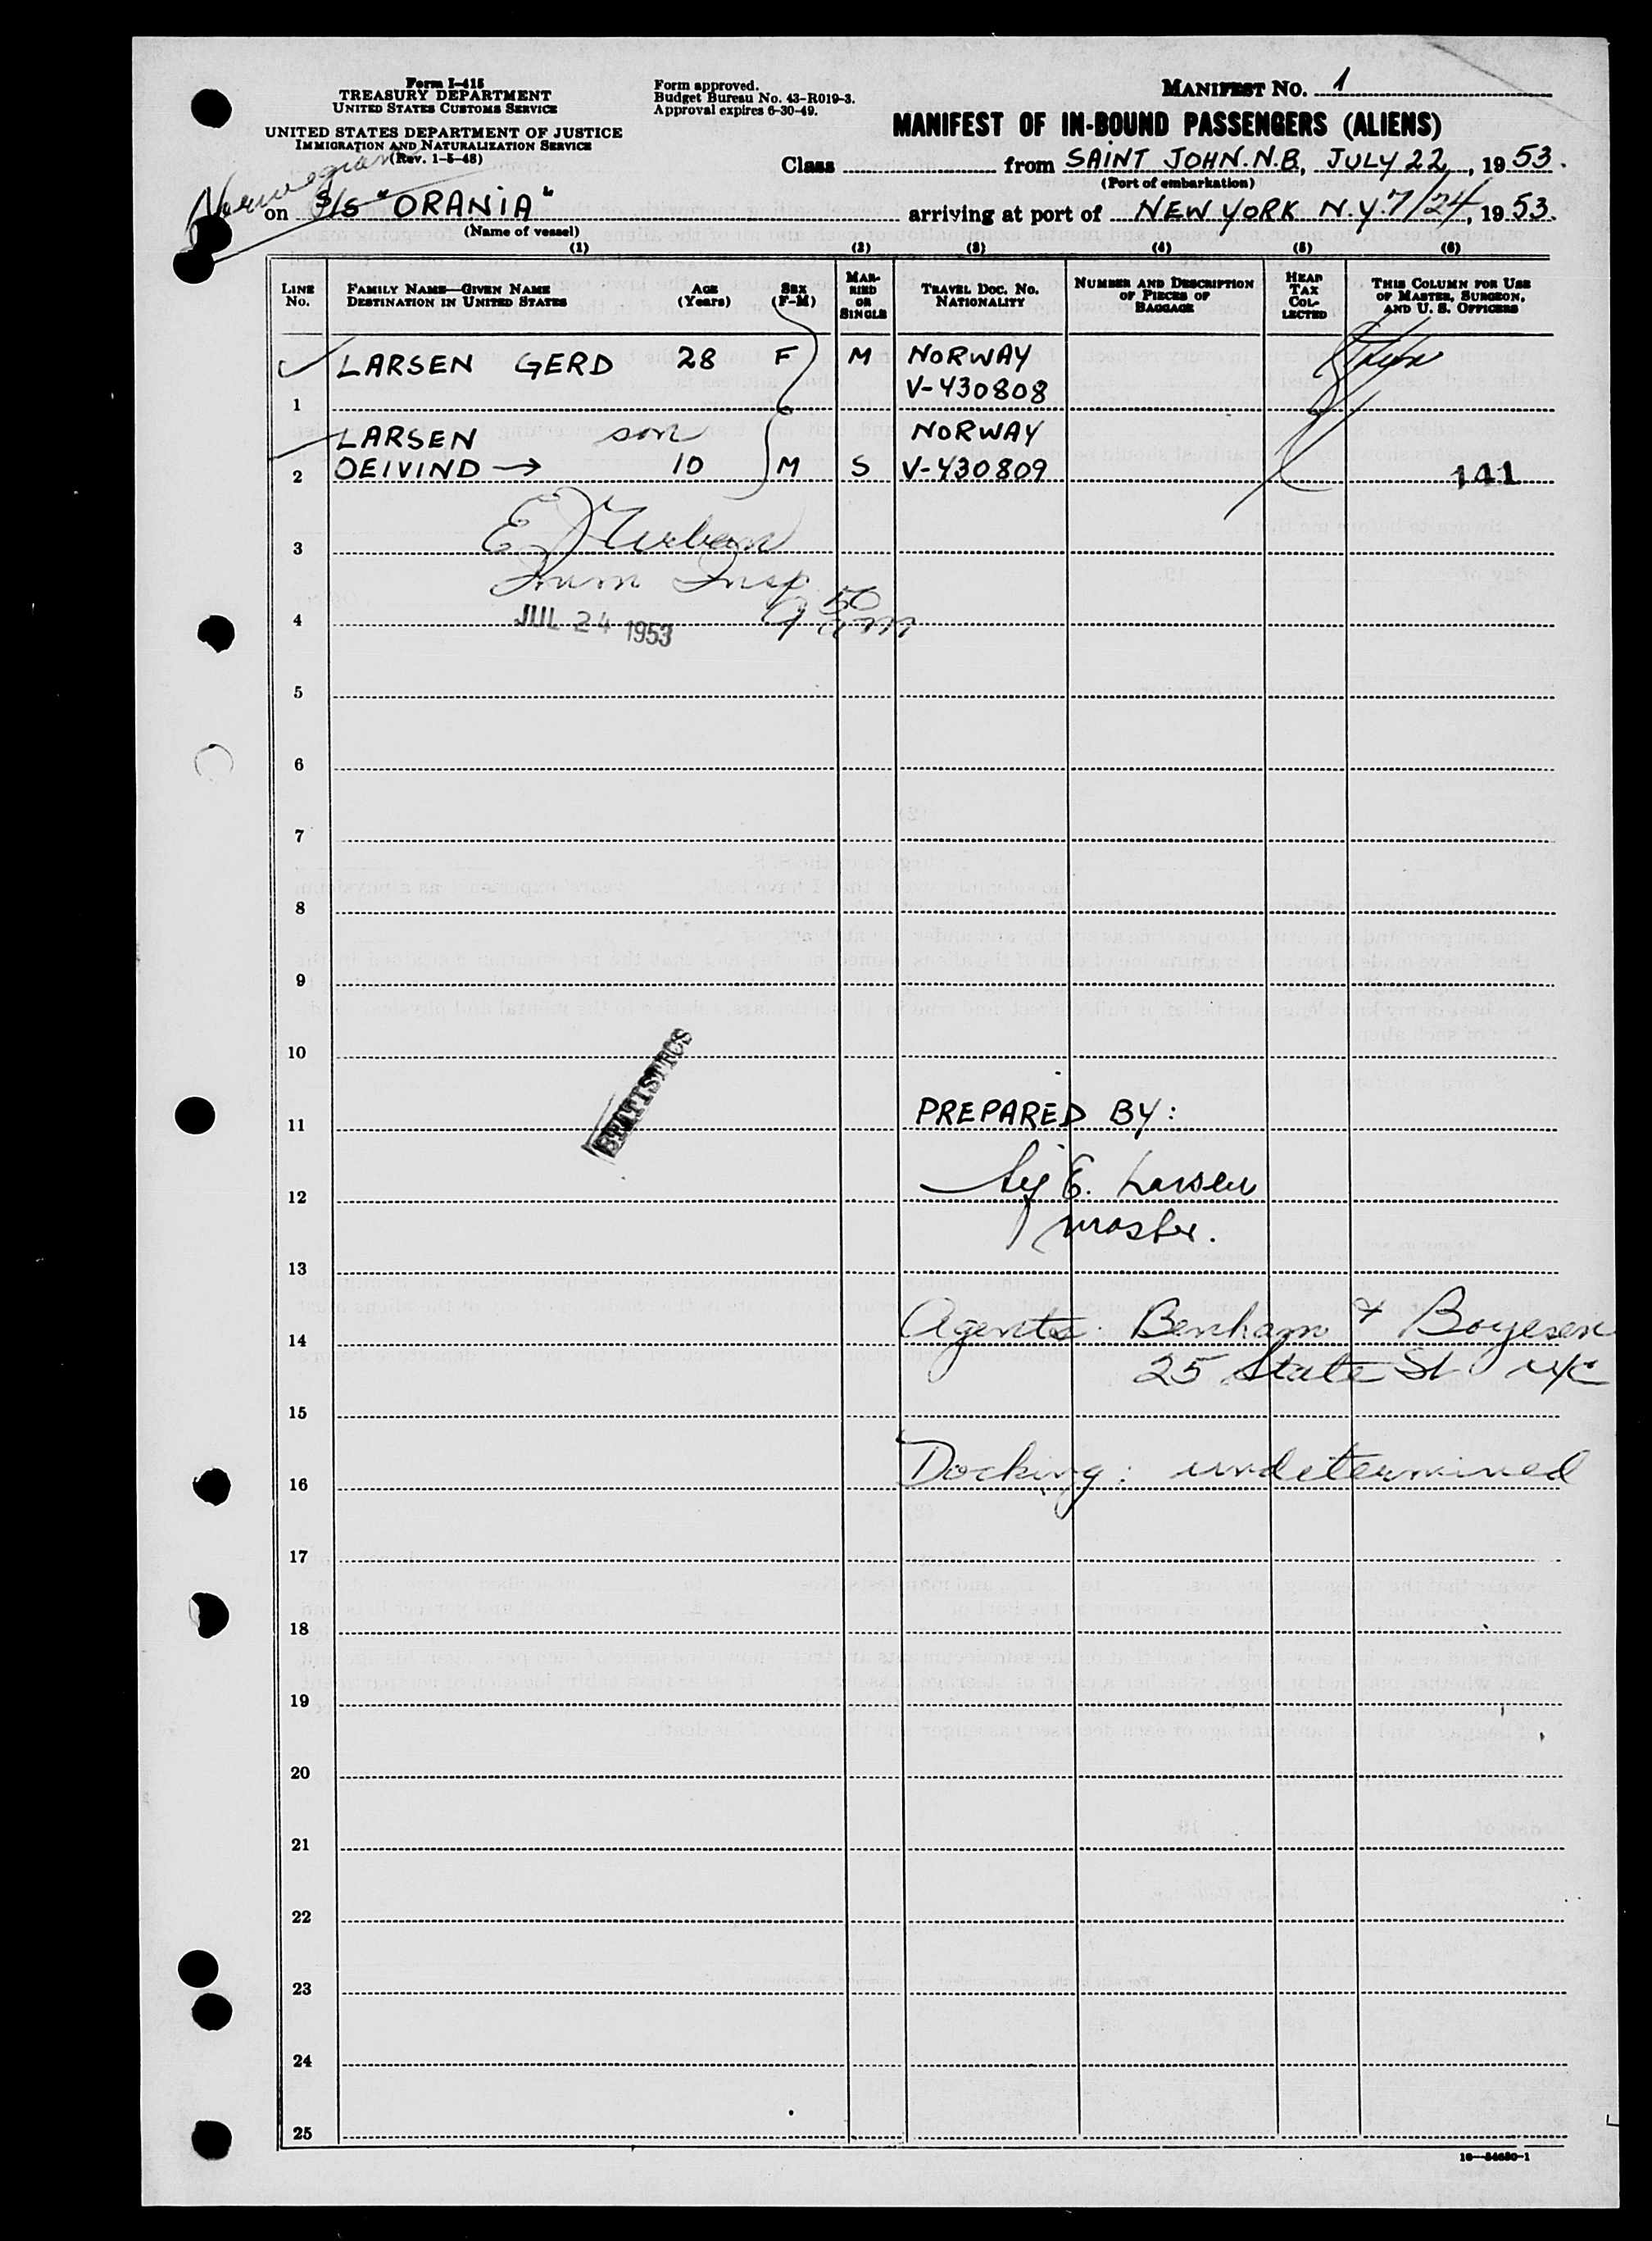 Form I-415
TREASURY DEPARTMENT
UNITED STATES CUSTOMS SERVICE
UNITED STATES DEPARTMENT OF JUSTICE
IMMIGRATION AND NATURALIZATION SERVICE
(Rev. 1-5-48)
Form approved.
Budget Bureau No. 43-R019-3.
Approval expires 6-30-49.
MANIFEST NO. 1
MANIFEST OF IN-BOUND PASSENGERS (ALIENS)
Class from SAINT JOHN. N.B., JULY 22, 1953.
(Port of embarkation)
Norwegian
on S/S "ORANIA" arriving at port of NEW YORK N.Y. 7/24, 1953.
(Name of vessel)
(1) (2) (3) (4) (5) (6)
LINE No. FAMILY NAME—GIVEN NAME DESTINATION IN UNITED STATES AGE (Years) SEX (F-M) MARRIED OR SINGLE TRAVEL DOC. NO. NATIONALITY NUMBER AND DESCRIPTION OF PIECES OF BAGGAGE HEAD TAX COLLECTED THIS COLUMN FOR USE OF MASTER, SURGEON, AND U. S. OFFICERS
LARSEN GERD 28 F M NORWAY
1 V-430808
LARSEN son NORWAY
2 OEIVIND → 10 M S V-430809 141
3 E
Imm Insp
4 JUL 24 1953 9 50 am
5
6
7
8
9
10
STATISTICS
11 PREPARED BY:
12 Sig E. Larsen
master.
13
14 Agents. Benham & Boyesen
25 State St NYC
15
16 Docking: undetermined
17
18
19
20
21
22
23
24
25